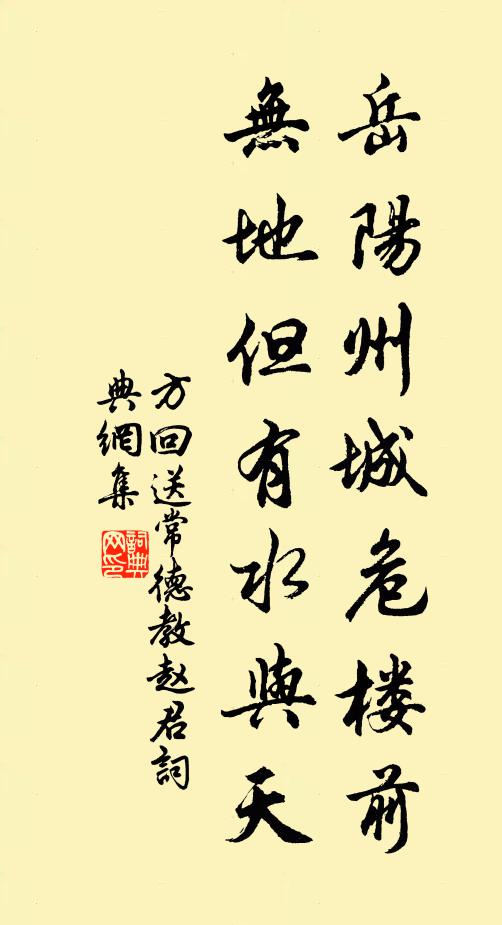 岳陽州城危楼前
無地但有水與天
方回送常德教赵君詞
典網集
詞典
网印